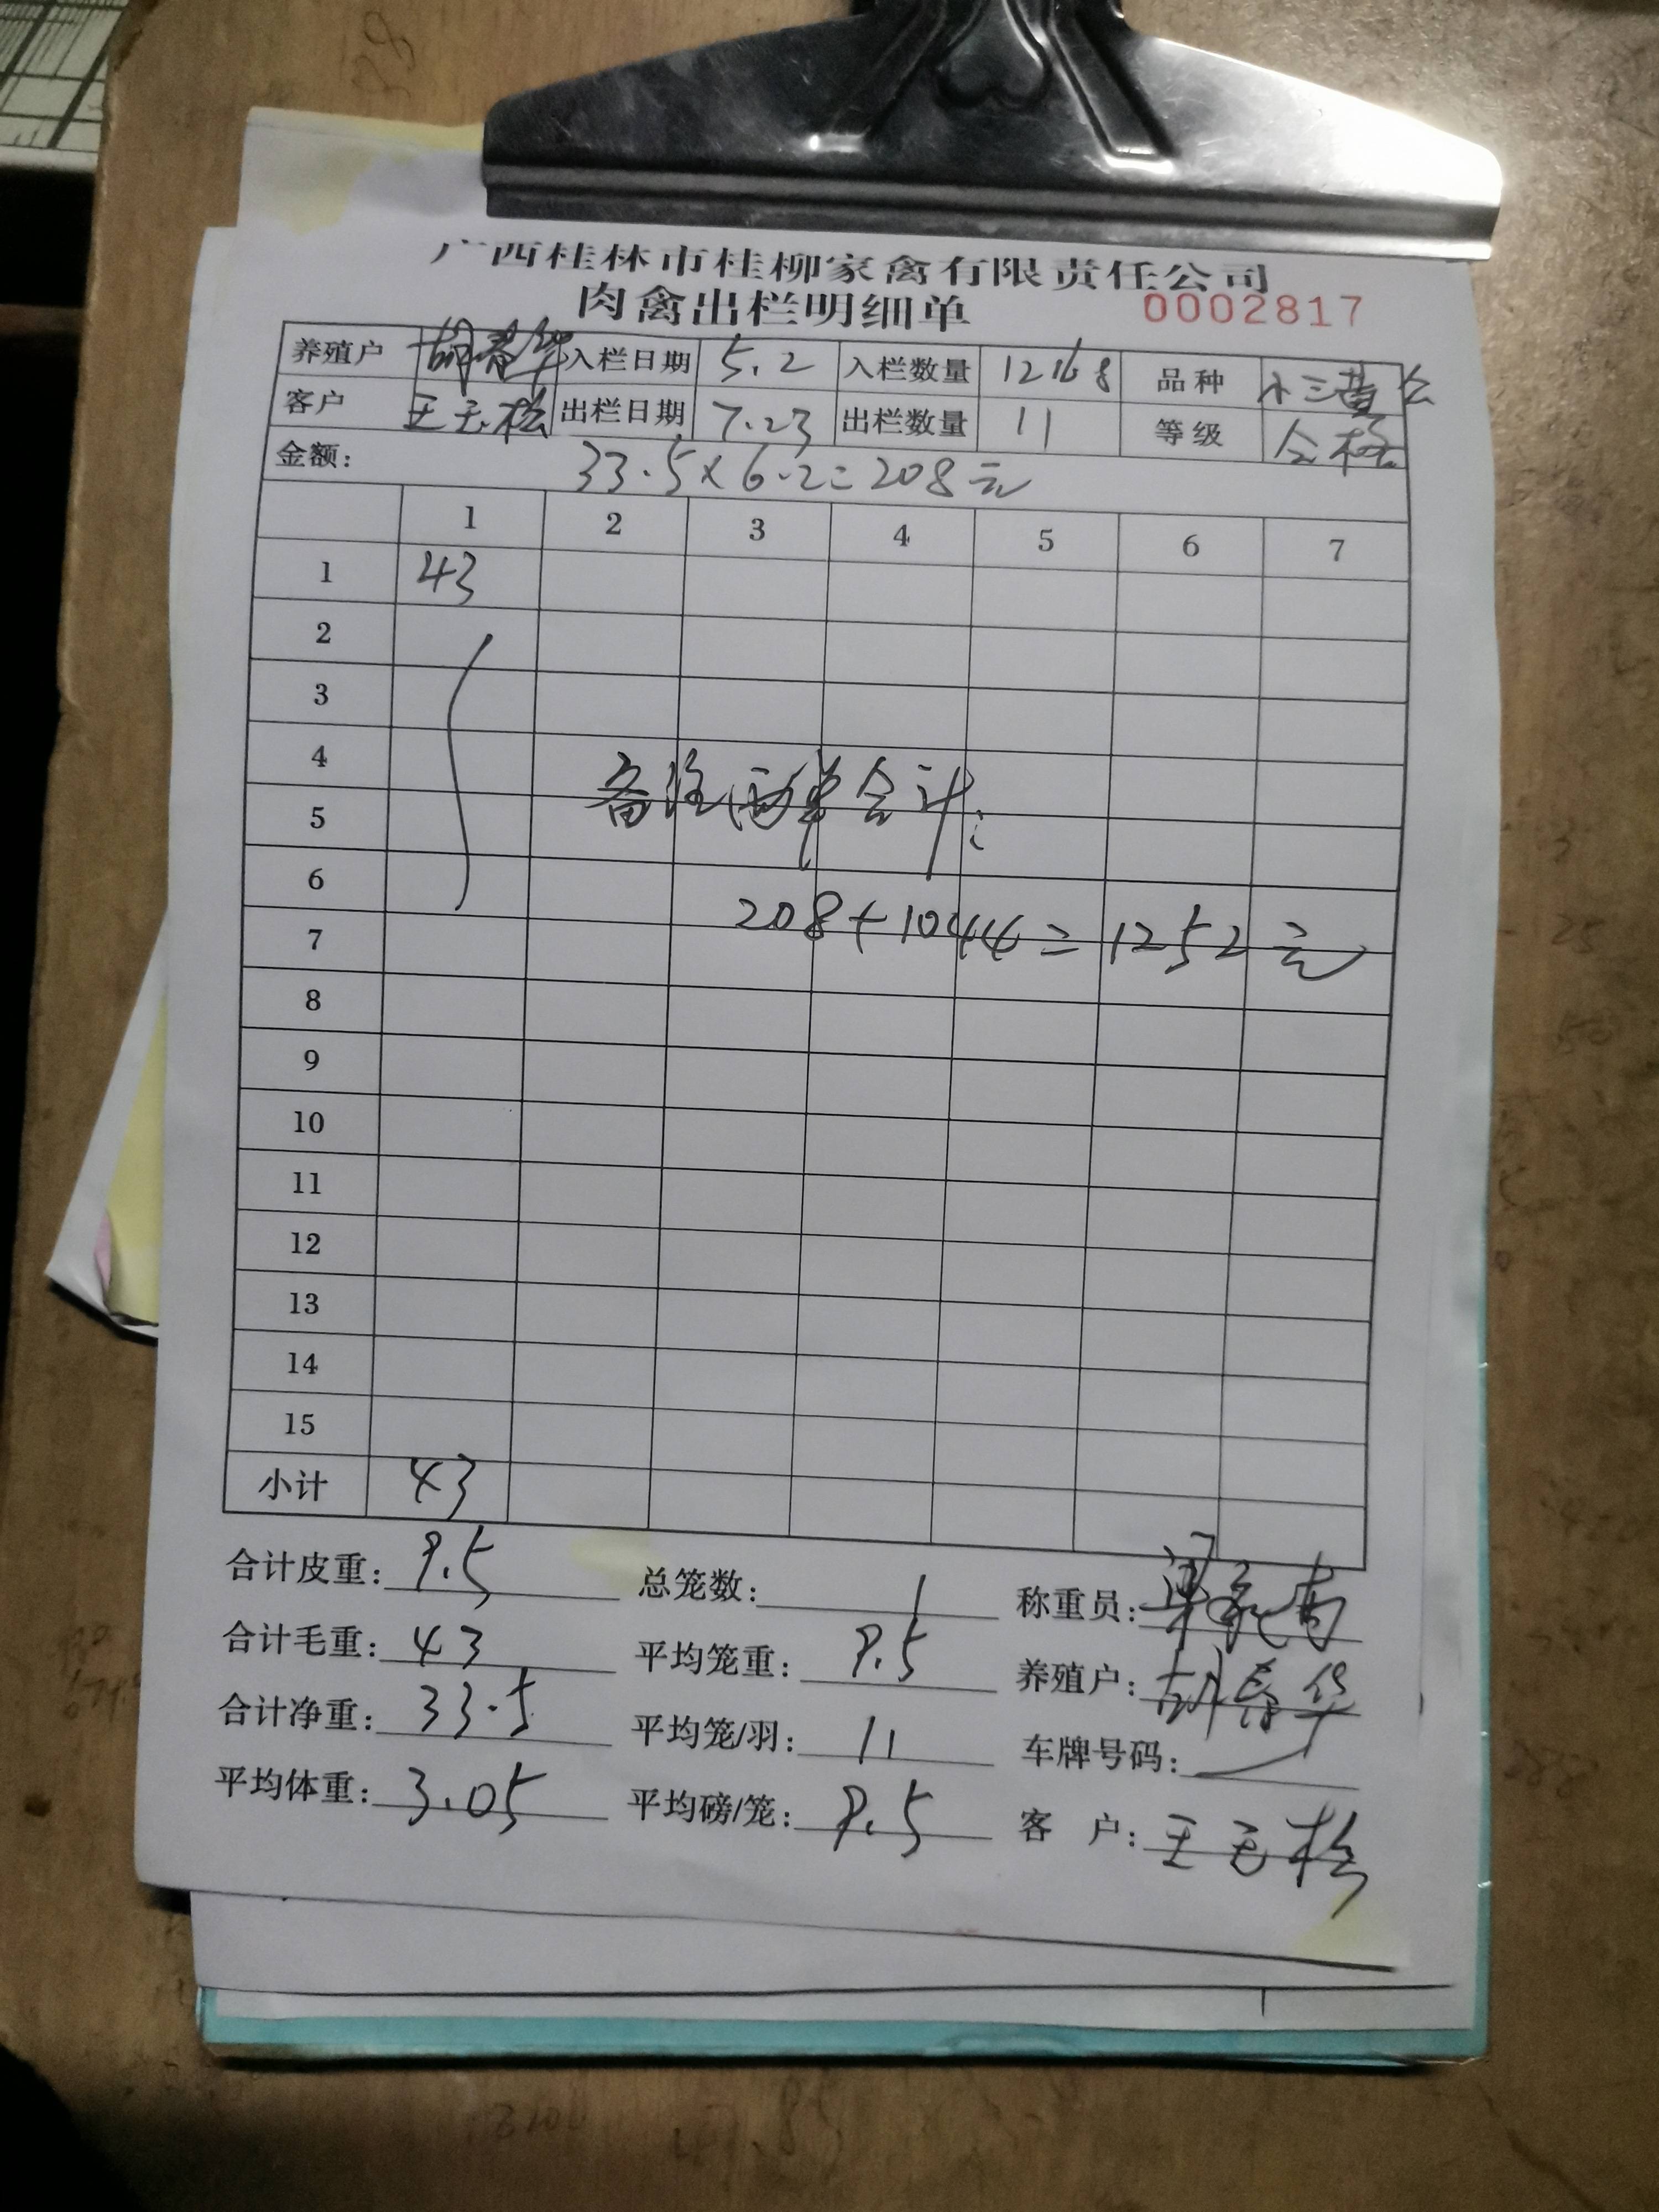 广西桂林市桂柳家禽有限责任公司
肉禽出栏明细单 0002817
养殖户 胡春华 入栏日期 5.2 入栏数量 12168 品种
客户 出栏日期 7.23 出栏数量 11 等级 合格
金额: 33.5×6.2=208元
1 2 3 4 5 6 7
1 43
2
3
4
备注两单合计:
5
6
208+1044=1252元
7
8
9
10
11
12
13
14
15
小计 43
合计皮重: 9.5 总笼数: 1 称重员:
合计毛重: 43 平均笼重: 9.5 养殖户: 胡春华
合计净重: 33.5 平均笼/羽: 11 车牌号码:
平均体重: 3.05 平均磅/笼: 9.5 客 户: